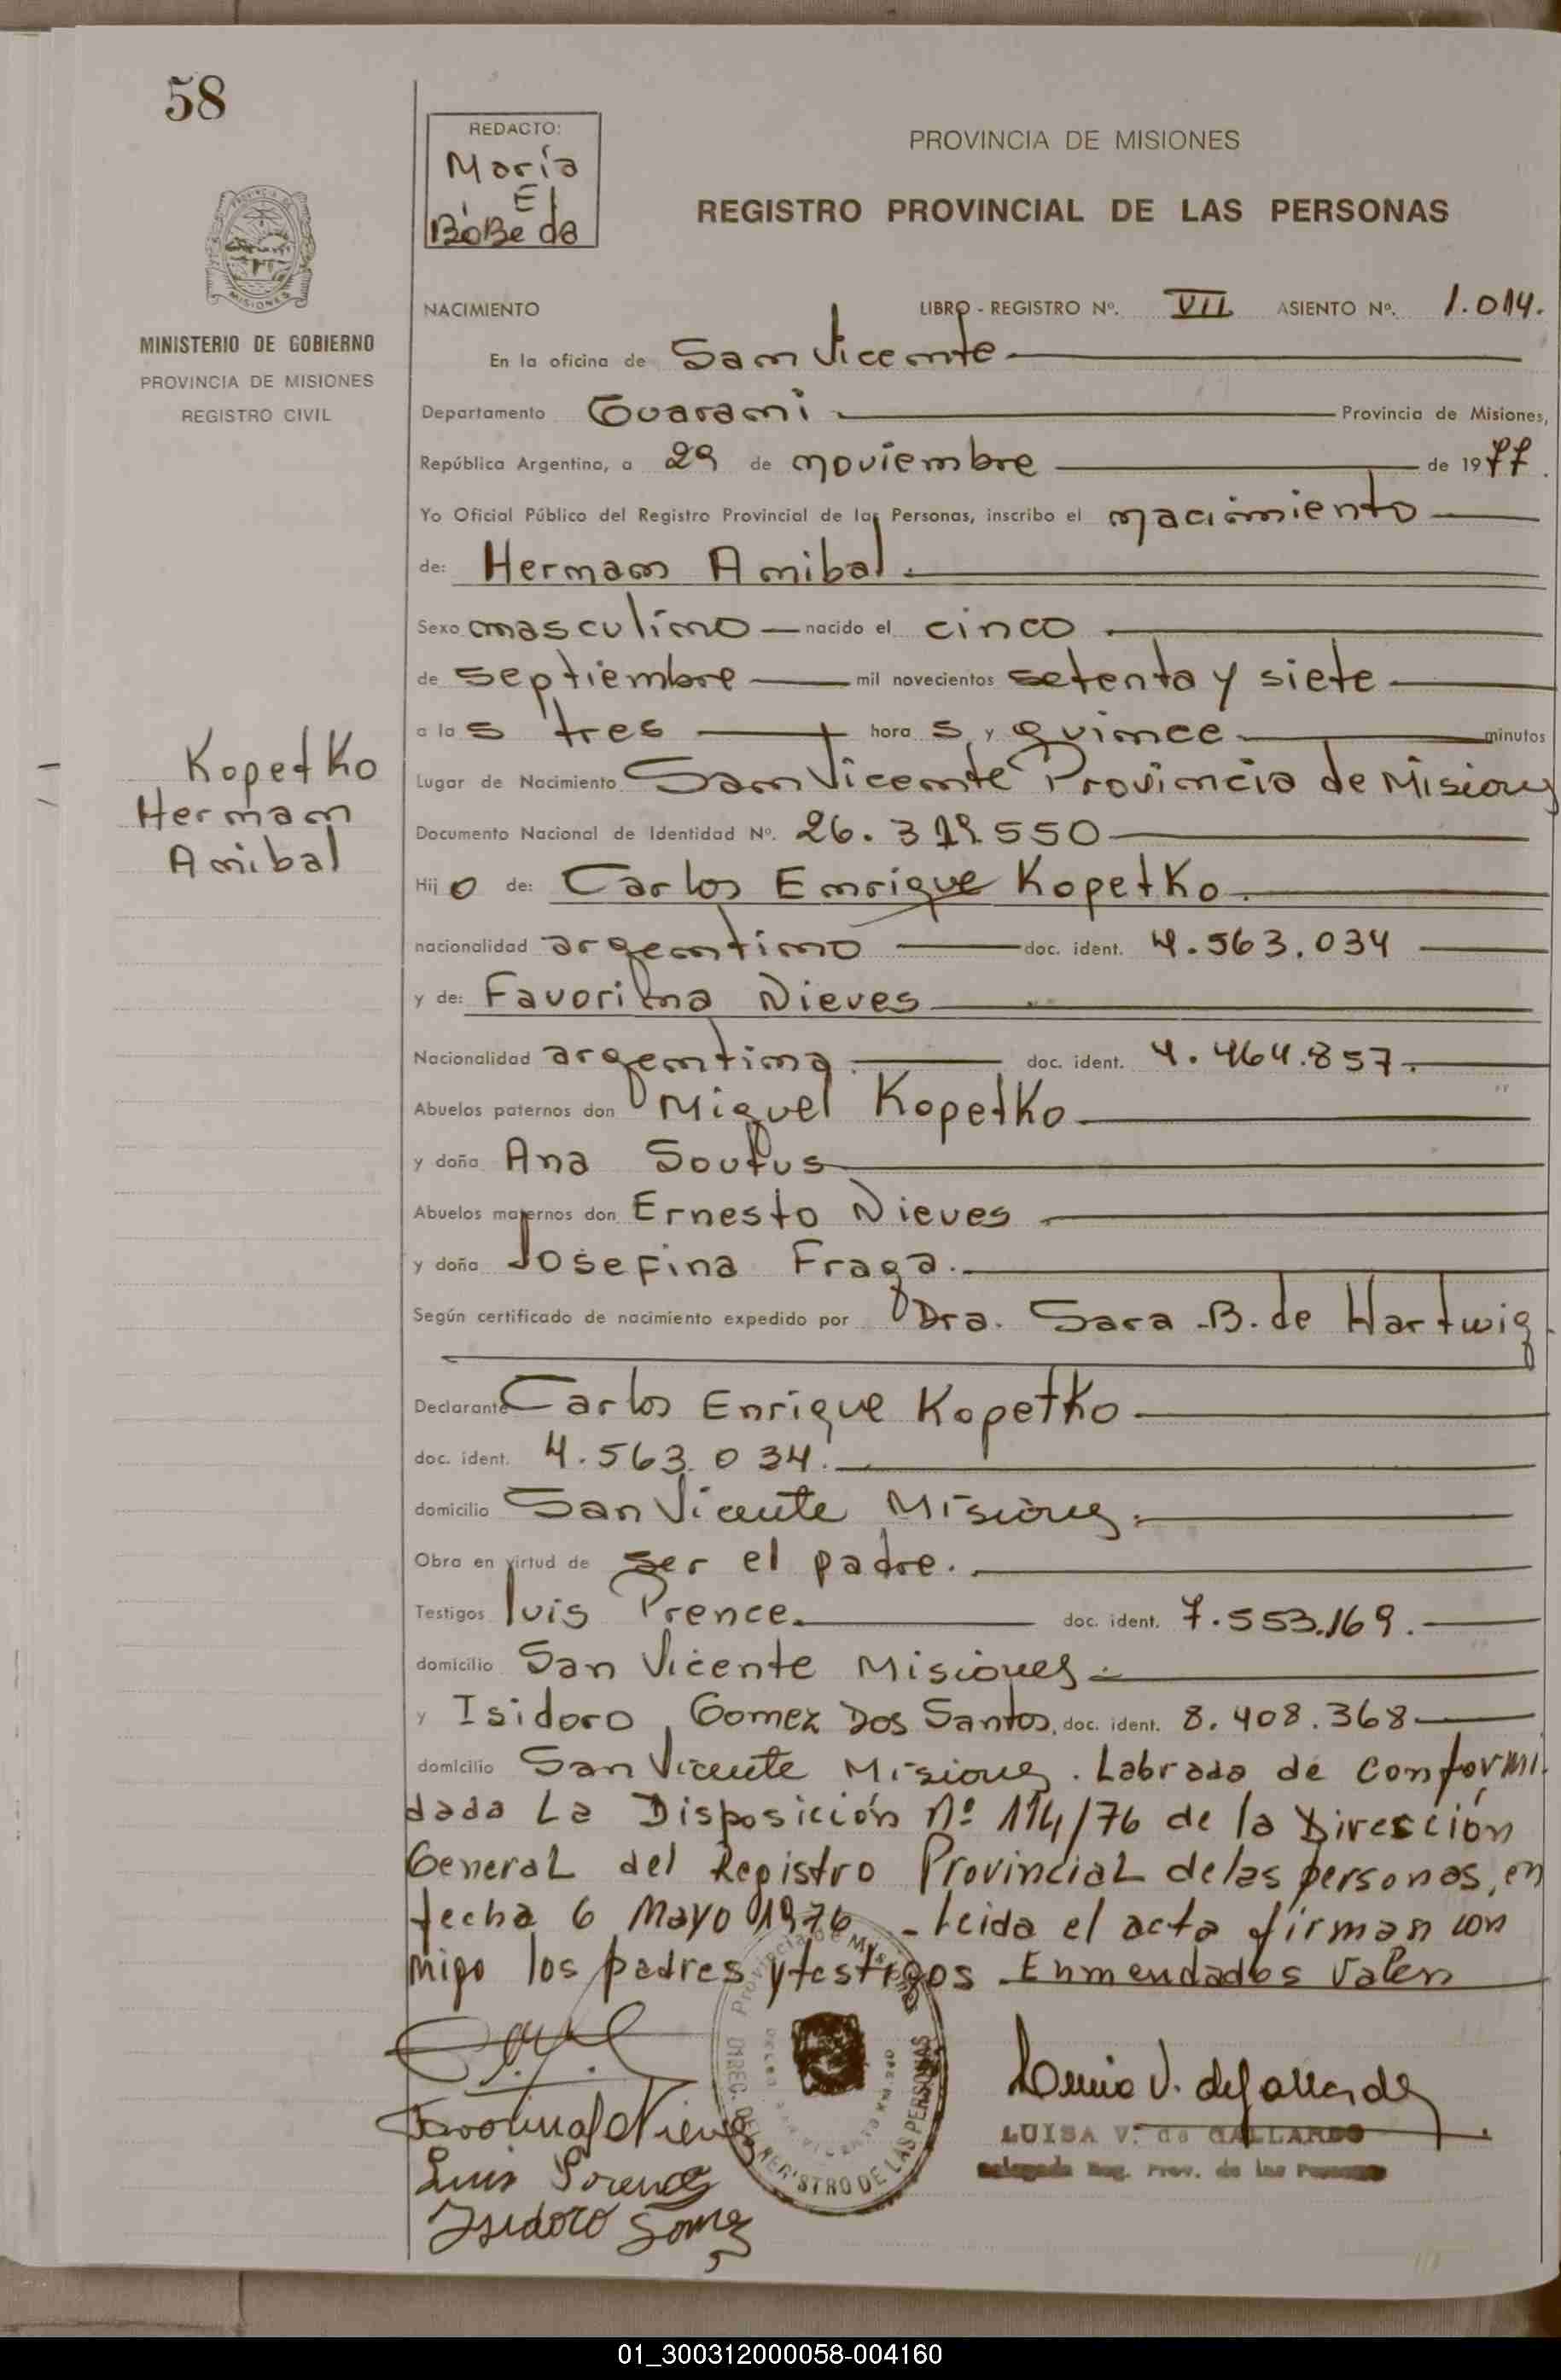 58
REDACTO:
María
El
BóBeda
PROVINCIA DE MISIONES
REGISTRO PROVINCIAL DE LAS PERSONAS
PROVINCIA DE MISIONES
MINISTERIO DE GOBIERNO
PROVINCIA DE MISIONES
REGISTRO CIVIL
NACIMIENTO LIBRO - REGISTRO Nº. VII ASIENTO Nº. 1.014.
En la oficina de San Vicente
Departamento Guarani Provincia de Misiones,
República Argentina, a 29 de noviembre de 1977.
Yo Oficial Público del Registro Provincial de las Personas, inscribo el nacimiento
de: Hernan Anibal.
Sexo masculino nacido el cinco
de septiembre mil novecientos setenta y siete
a las tres horas y quince minutos
Kopetko
Hernan
Anibal
Lugar de Nacimiento San Vicente Provincia de Misiones
Documento Nacional de Identidad Nº. 26.312.550
Hijo de: Carlos Enrique Kopetko.
nacionalidad argentino doc. ident. 4.563.034
y de: Favorina Nieves
Nacionalidad argentina doc. ident. 4.464.857.
Abuelos paternos don Miguel Kopetko
y doña Ana
Abuelos maternos don Ernesto Nieves
y doña Josefina Fraga.
Según certificado de nacimiento expedido por Dra. Sara B. de Hartwig.
Declarante Carlos Enrique Kopetko
doc. ident. 4.563.034.
domicilio San Vicente Misiones.
Obra en virtud de ser el padre.
Testigos luis Prence. doc. ident. 7.553.169.
domicilio San Vicente Misiones.
y Isidoro Gomez Dos Santos, doc. ident. 8.408.368
domicilio San Vicente Misiones. Labrada de Conformi-
dada La Disposición Nº 114/76 de la Dirección
General del Registro Provincial de las personas, en
fecha 6 Mayo 1976 - Leida el acta firman con
migo los padres y testigos Enmendados Valen
Provincia de Misiones
DIREC. DEL REGISTRO DE LAS PERSONAS
Luisa V. de Gallardo
LUISA V. de GALLARDO
Delegada Reg. Prov. de las Personas
Favorina Nieves
Luis Prence
Isidoro Gomez
01_300312000058-004160